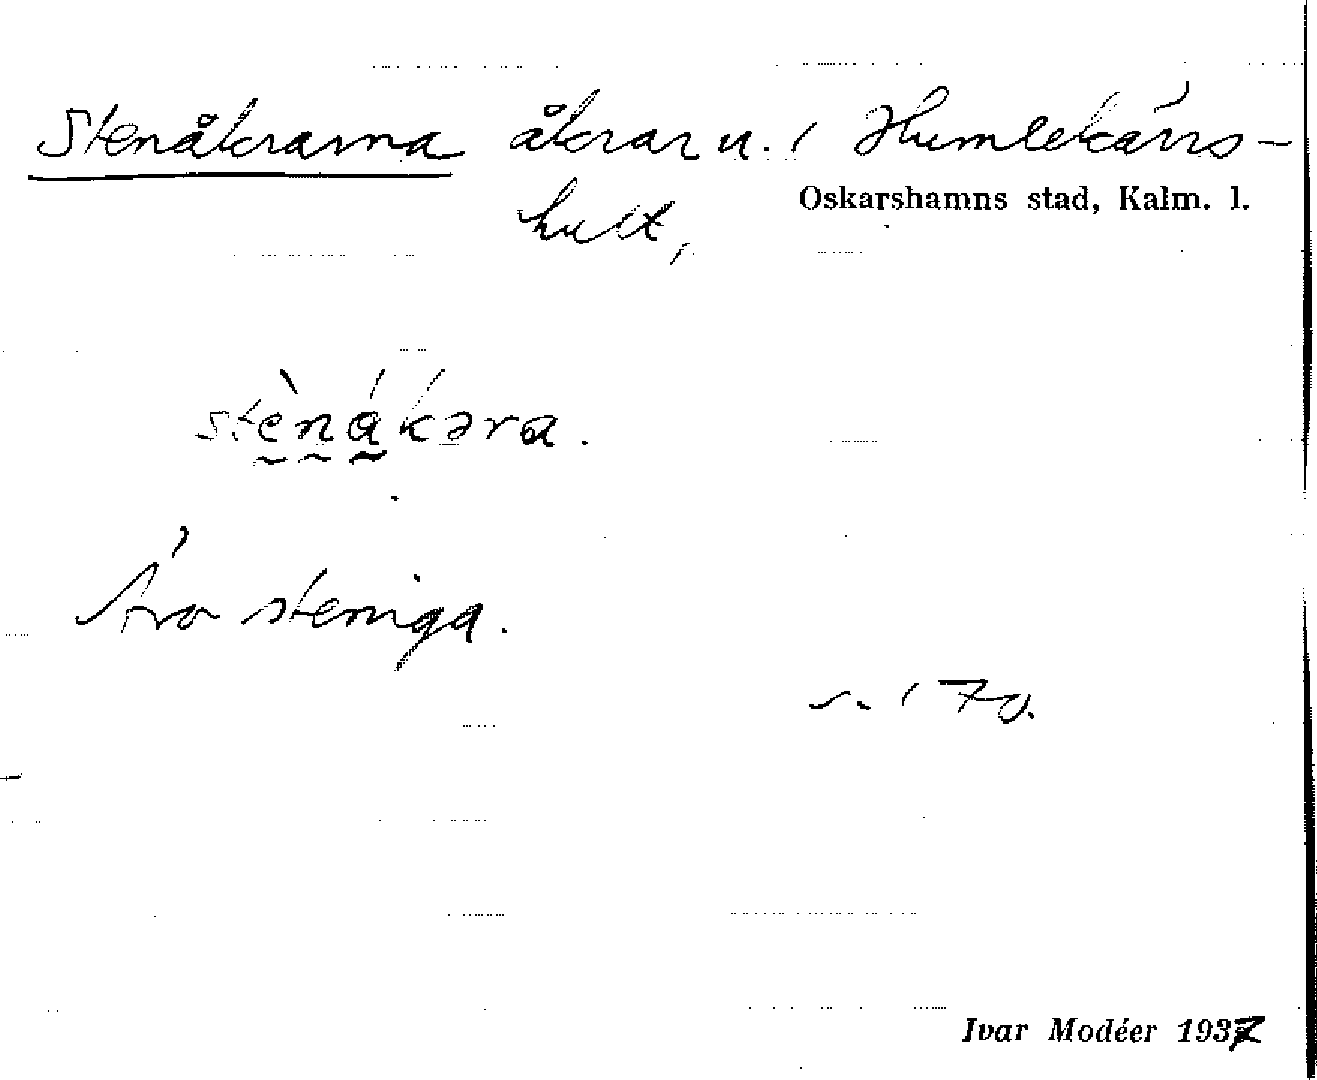 Stenåkrarna åkrar n. i Humlekärrs-
Oskarshamns stad, Kalm. l.
hult,
stènákəra.
Äro steniga.
170.
Ivar Modéer 1937